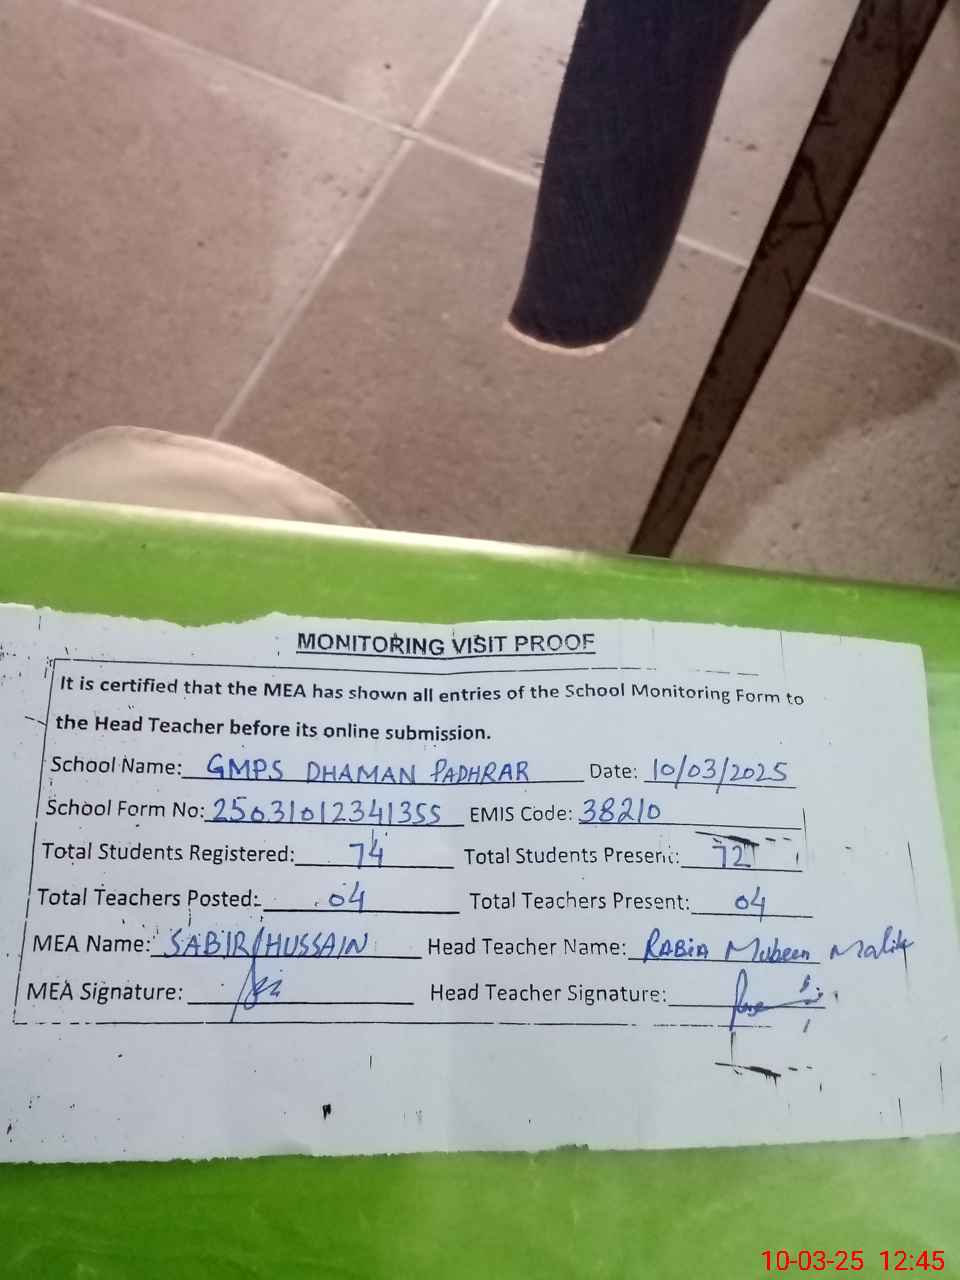 MONITORING VISIT PROOF
It is certified that the MEA has shown all entries of the School Monitoring Form to
the Head Teacher before its online submission.
School Name: GMPS DHAMAN PADHRAR Date: 10/03/2025
School Form No: 25031012341355 EMIS Code: 38210
Total Students Registered: 74 Total Students Present: 72
Total Teachers Posted: 04 Total Teachers Present: 04
MEA Name: SABIR HUSSAIN Head Teacher Name: RABIA Mubeen Malik
MEA Signature: Head Teacher Signature:
10-03-25 12:45